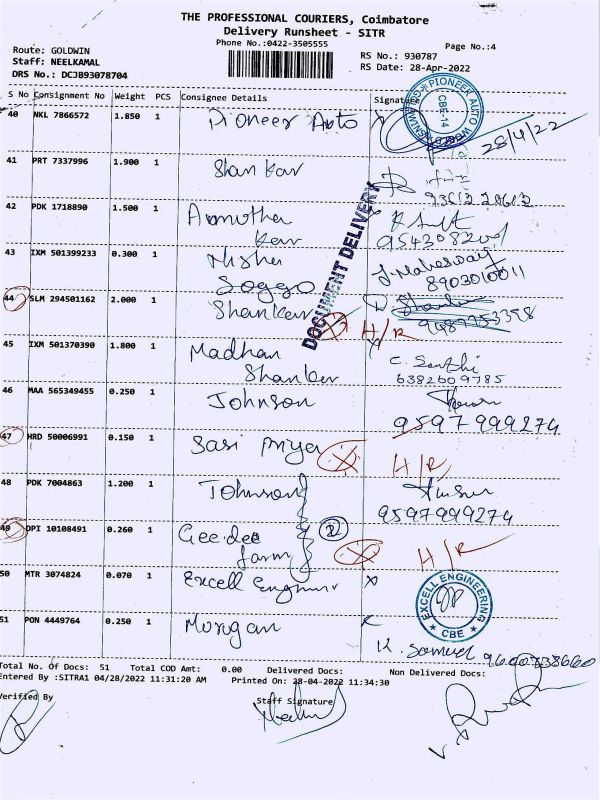 THE PROFESSIONAL COURIERS, Coimbatore
Delivery Runsheet - SITR
Phone No.:0422-3505555
Page No.:4
Route: GOLDWIN
Staff: NEELKAMAL
DRS No.: DCJB93078704
RS No.: 930787
RS Date: 28-Apr-2022
S No Consignment No Weight PCS Consignee Details Signature
40 NKL 7866572 1.850 1 Pioneer Auto
PIONEER AUTO
CBE-14
28/4/22
41 PRT 7337996 1.900 1 Shan kar
42 PDK 1718890 1.500 1
43 IXM 501399233 0.300 1 Nisha
8903010011
DOCUMENT DELIVERY
44 SLM 294501162 2.000 1 Shanker H/R
45 IXM 501370390 1.800 1 Madhan
Shanker
C. Santhi
6382609785
46 MAA 565349455 0.250 1 Johnson
9597999274
47 HRD 50006991 0.150 1 Sasi Priya H/R
48 PDK 7004863 1.200 1 Johnson
9597999274
49 OPI 10108491 0.260 1 Geedee
farm
2
H/R
50 MTR 3074824 0.070 1 Excell
EXCELL ENGINEERING
CBE
51 PON 4449764 0.250 1 Morugan
K. Samuel
Total No. Of Docs: 51 Total COD Amt: 0.00 Delivered Docs: Non Delivered Docs:
Entered By :SITRA1 04/28/2022 11:31:20 AM Printed On: 28-04-2022 11:34:30
Verified By Staff Signature